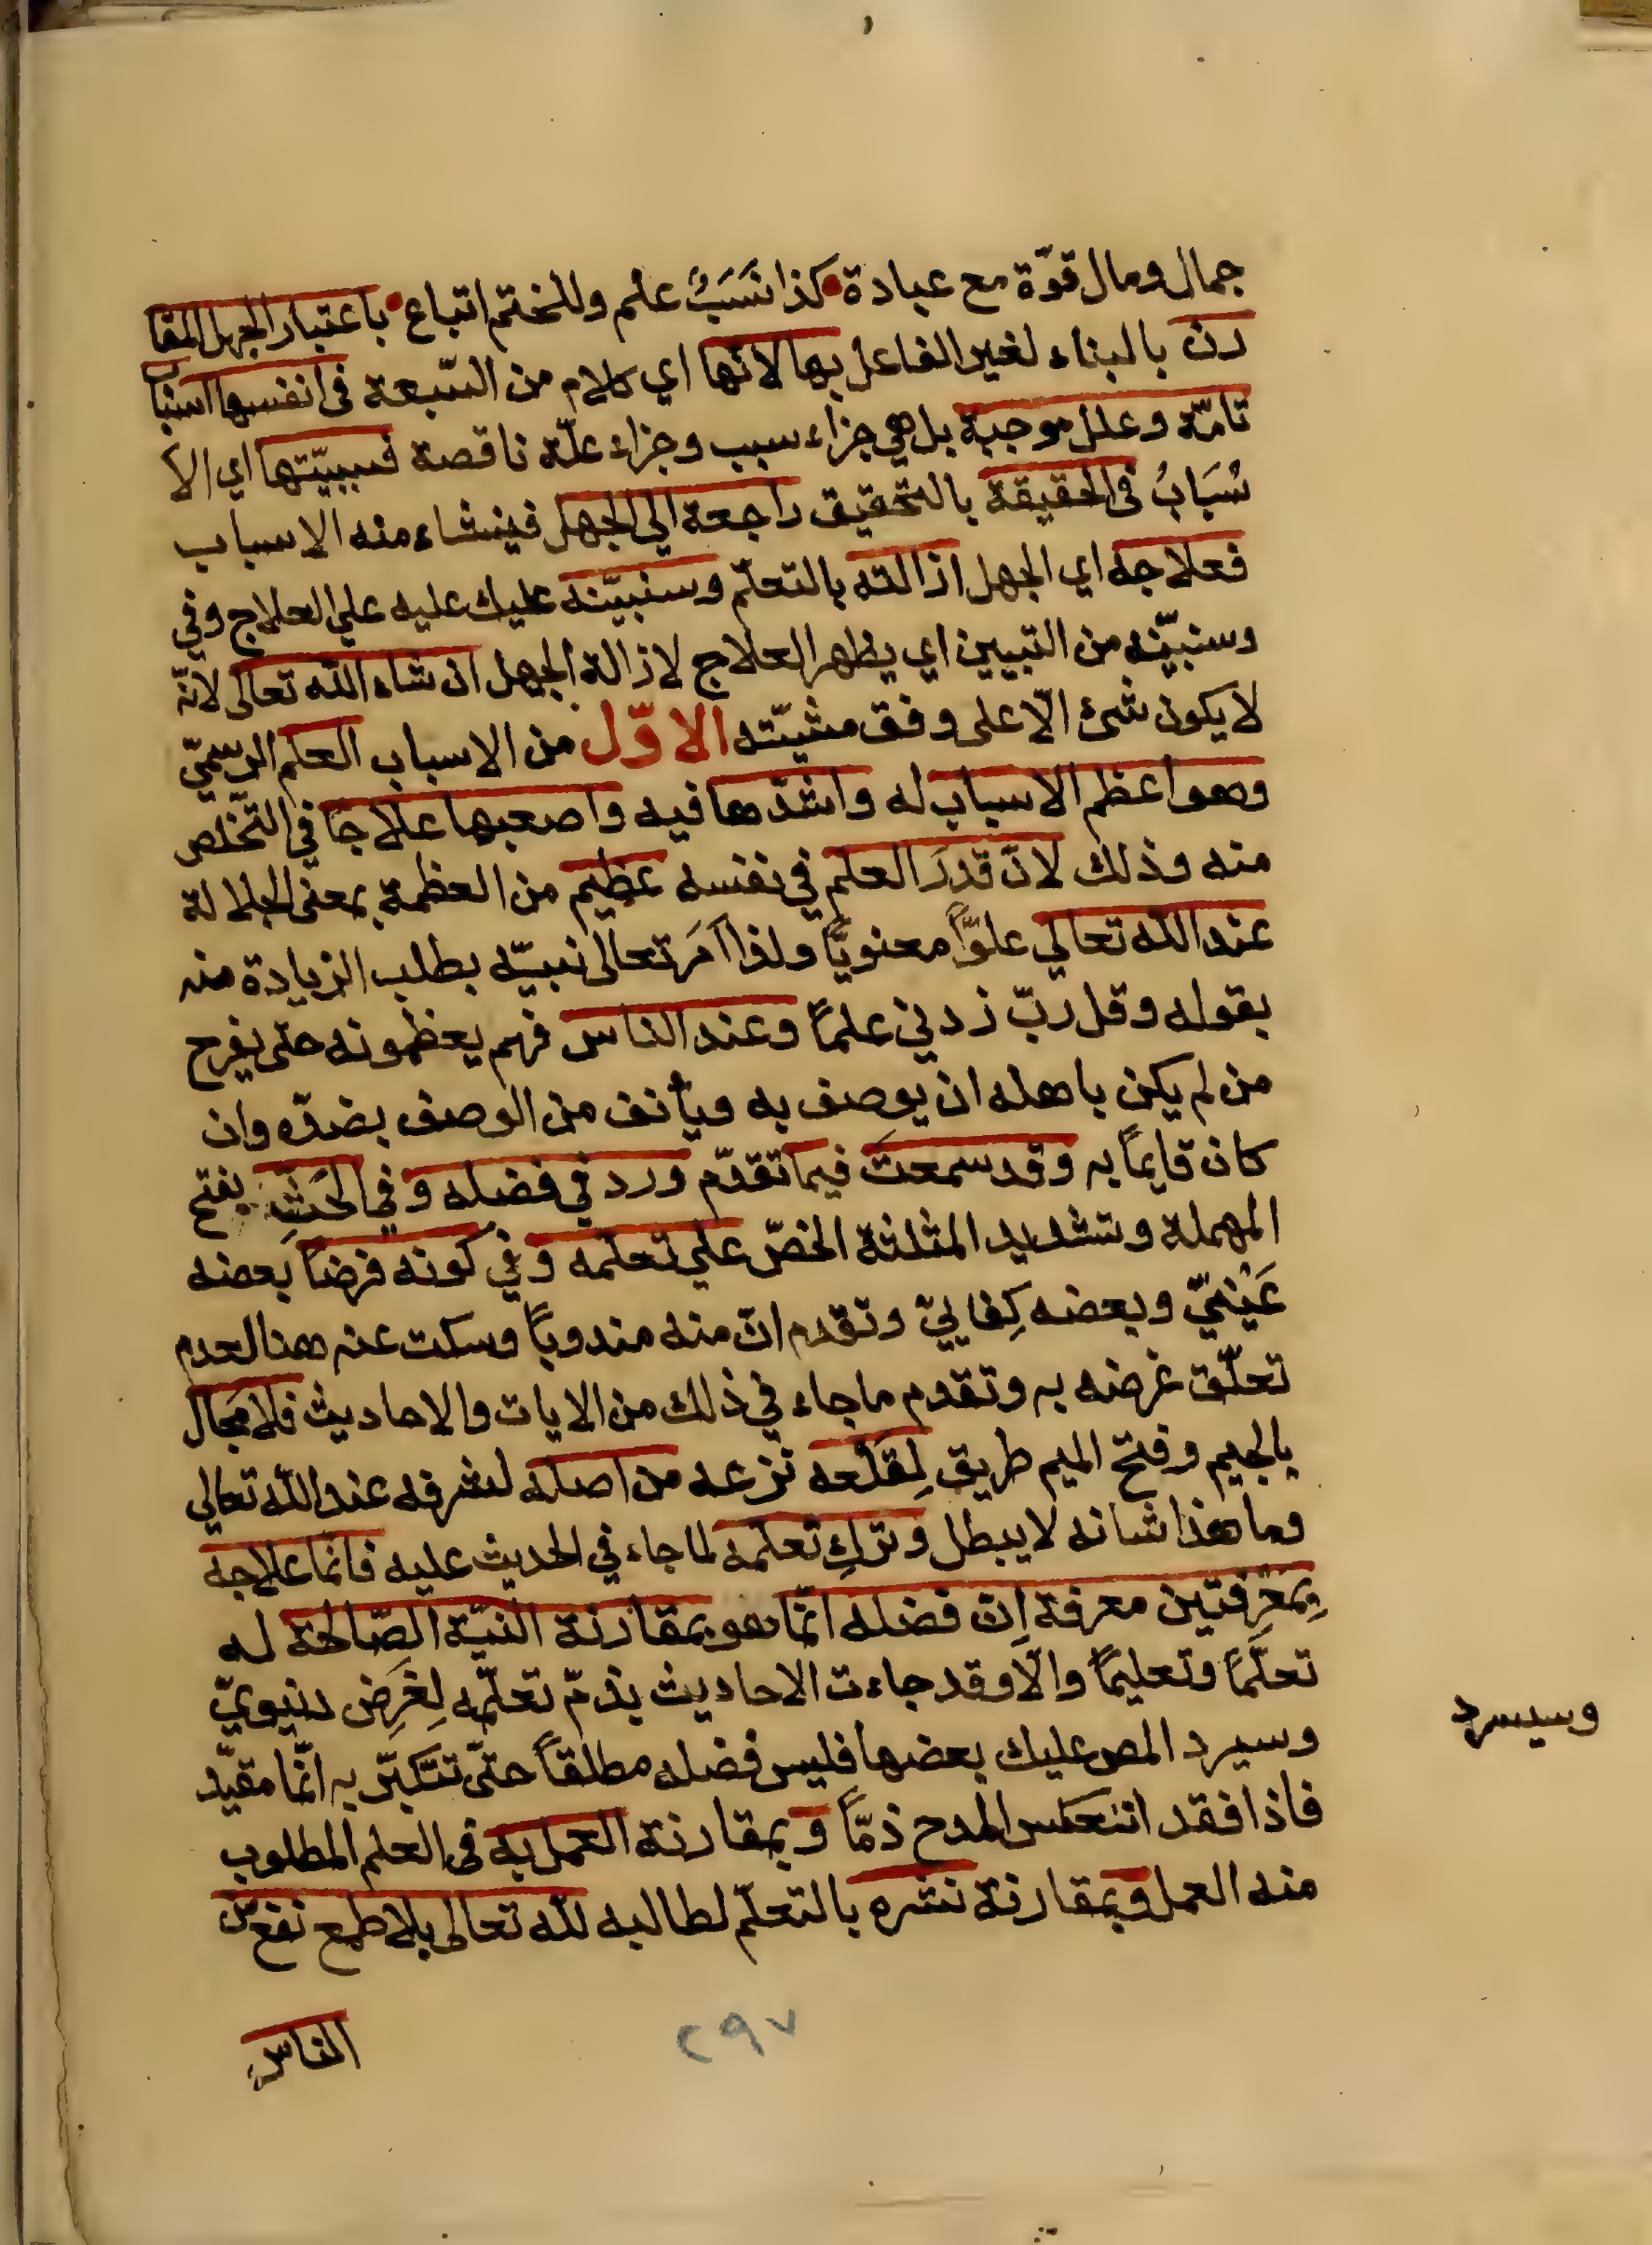 جمال ومال قوّة مع عبادة كذا نَسَبٌ علم وللختم اتباع باعتبار الجهل المقا
رن بالبناء لغير الفاعل بها لانها اي كلام من السّبعة في انفسها اسبا
ب
تامّة وعلل موجبة بل هي جزاء سبب وجزاء علّة ناقصة فسببيّتها اي الا
سْبَابُ في الحقيقة بالتحقيق راجعة الي الجهل فينشاء منه الاسباب
فعلاجه اي الجهل ازالته بالتعلّم وسنبيّنه عليك عليه علي العلاج وفي
وسنبيّنه من التبيين اي يظهر العلاج لازالة الجهل ان شاء الله تعالى لانّه
لا يكون شئ الّا على وفق مشيّته الاوّل من الاسباب العلم الرسميّ
وهو اعظم الاسباب له واشدّها فيه واصعبها علاجًا في التّخلص
منه وذلك لانّ قدرَ العلم في نفسه عظيم من العظمة بمعنى الجلالة
عند الله تعالي علوًّا معنويًّا ولذا اَمَر تعالى نبيّه بطلب الزيادة منه
بقوله وقل ربّ زدني علمًا وعند الناس فهم يعظمونه حتى يفرح
من لم يكن باهله ان يوصف به ويأنف من الوصف بضدّه وان
كان قايمًا به وقد سمعتَ فيما تقدّم ورد في فضله وفي الحَثِّ بفتح
المهملة وتشديد المثلثة الخصّ علي تعلّمه وفي كونه فرضًا بعضه
عَيْنيّ وبعضه كِفاليّ وتقدم انّ منه مندوبًا وسكت عنه هنا لعدم
تعلّق غرضه به وتقدم ما جاء في ذلك من الايات والاحاديث فلا مَجال
بالجيم وفتح الميم طريق لِقَلْعه نزعه من اصله لشرفه عند الله تعالي
وما هذا شانه لا يبطل وتركِ تعلّمه لما جاء في الحديث عليه فانما علاجه
بِمَعْرِفتين معرفة اِنّ فضله انّما هو بمقارنة النيّة الصّالحة له
تعلّمًا وتعليمًا والّا وقد جاءت الاحاديث بذمّ تعلّمه لِغَرَضٍ دنيويّ
وسيرد المص عليك بعضها فليس فضله مطلقًا حتّى تتكبّر به انّما مقيّد
فاذا فقد انتعكس المدح ذمًّا وبمقارنة العمل به في العلم المطلوب
منه العمل وبمقارنة نشره بالتعلّم لطالبه لله تعالى بلا طمع نفع من
الناس
٢٩٧
وسيسرد